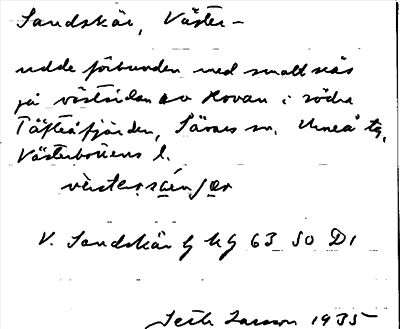 Sandskär, Väster-
udde förbunden med smalt näs
på västsidan av Kovan i södra
Täfteåfjärden, Sävars sn. Umeå tg,
Västerbottens l.
V. Sandskär G Kg 63 SO D1
Larsson 1935